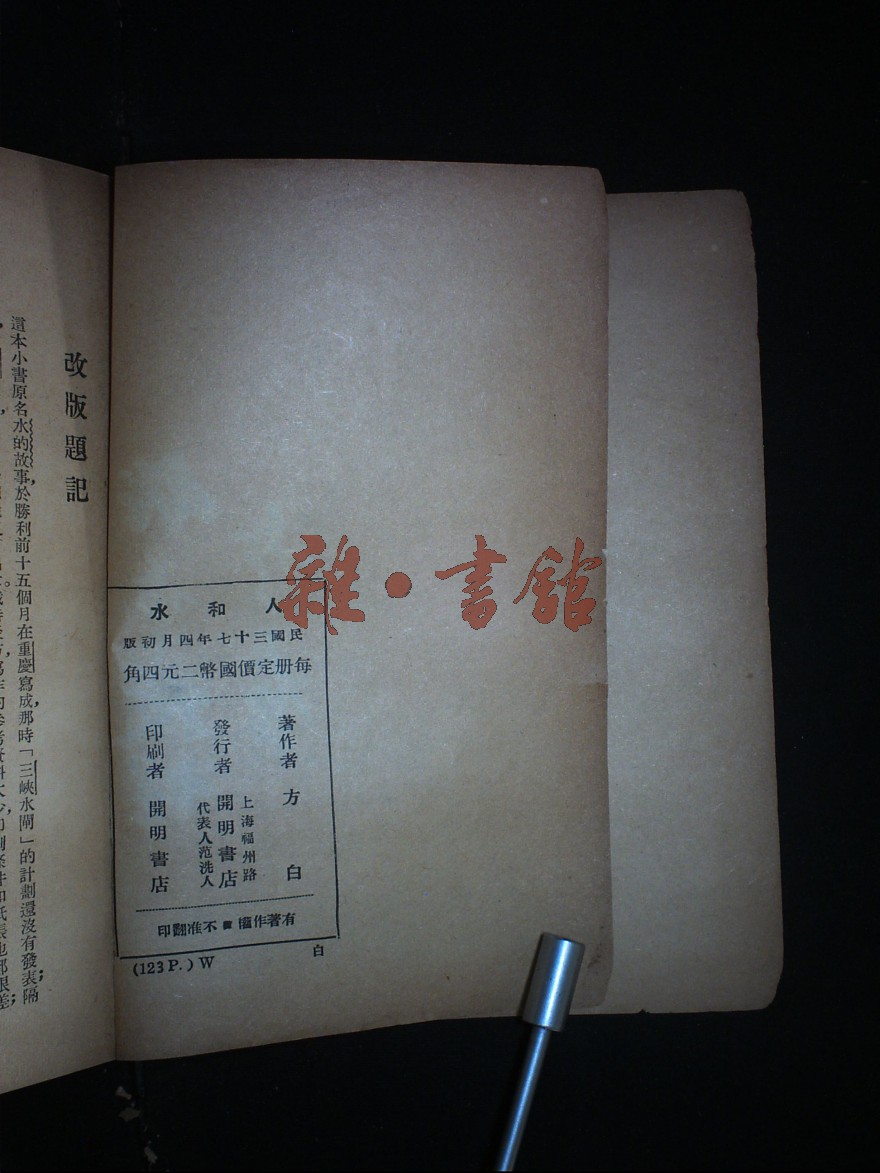 改版題記
這本小書原名水的故事，於勝利前十五個月在重慶寫成，那時「三峽水閘」的計劃還沒有發表；隔
雜·書館
人和水
民國三十七年四月初版
每册定價國幣二元四角
著作者 方白
發行者 上海福州路 開明書店 代表人范洗人
印刷者 開明書店
有著作權■不准翻印
(123 P.) W
白